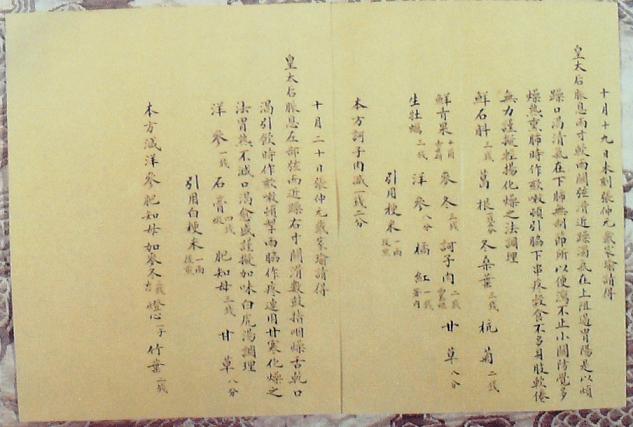 十月十九日未刻張仲元戴家瑜請得
皇太后脈息兩寸軟而關弦滑近躁濁氣在上阻遏胃陽是以煩
躁口渴清氣在下肺無制節所以便瀉不止小關防覺多
燥熱熏肺時作咳嗽頓引脇下串疼穀食不多身肢軟倦
無力謹擬輕揚化燥之法調理
鮮石斛二錢 葛根 冬桑葉三錢 杭菊二錢
鮮青果十個 麥冬三錢 訶子肉二錢 甘草八分
生牡蠣三錢 洋參八分 橘紅一錢
引用粳米一兩後煎
本方訶子肉減一錢二分
十月二十日張仲元戴家瑜請得
皇太后脈息左部弦而近躁右寸關滑數鼓指咽燥舌乾口
渴引飲時作咳嗽頓掣兩脇作疼連用甘寒化燥之
法胃熱不減口渴愈盛謹擬加味白虎湯調理
洋參一錢 石膏四錢 肥知母三錢 甘草八分
引用白粳米一兩後煎
本方減洋參肥知母加麥冬 燈心一子竹葉一錢